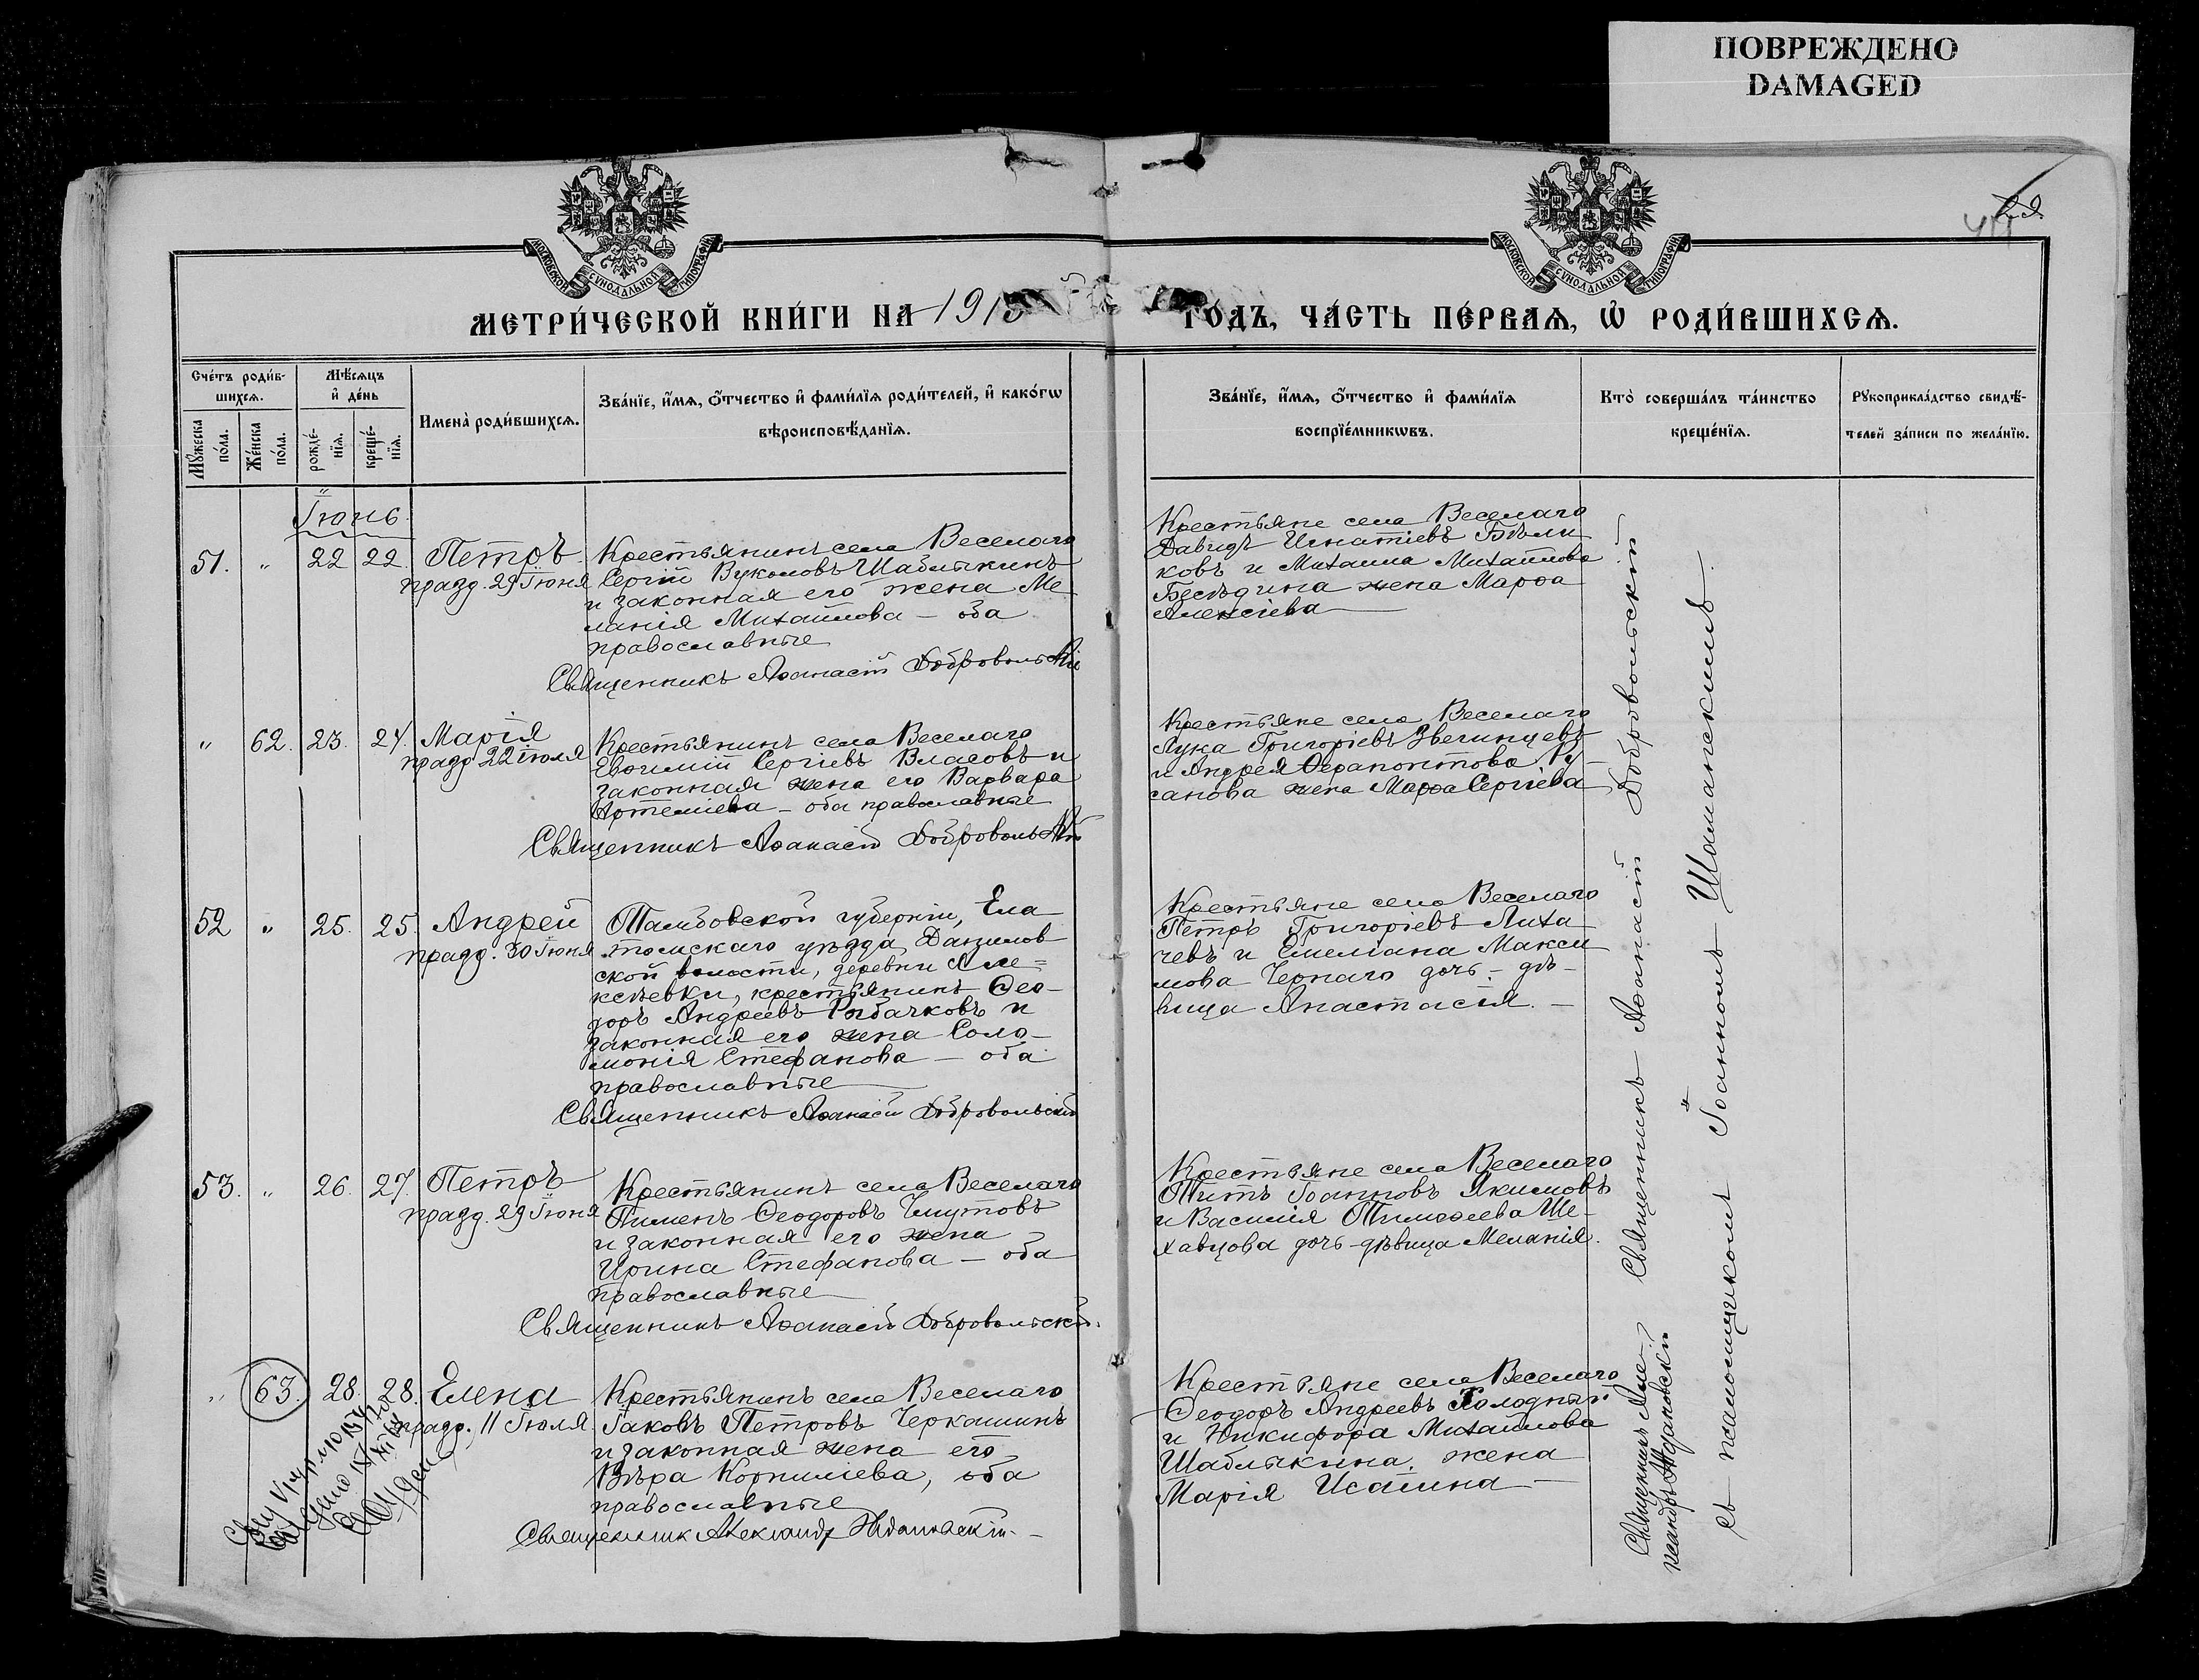 ПОВРЕЖДЕНО
DAMAGED
МОСКОВСКОЙ СѴНОДАЛЬНОЙ ТИПОГРАФІИ
МОСКОВСКОЙ СѴНОДАЛЬНОЙ ТИПОГРАФІИ
МЕТРИ́ЧЕСКОЙ КНИ́ГИ НА 1915
ГО́ДЪ, ЧА́СТЬ ПЕ́РВАѦ, Ѽ РОДИ́ВШИХСѦ.
Сче́тъ роди́в-
шихсѧ.
Мꙋ́жеска по́ла.
Же́нска по́ла.
Мѣ́сѧцъ
и҆ де́нь
рожде́-
нїѧ.
креще́-
нїѧ.
Имена̀ роди́вшихсѧ.
Зва́нїе, и҆́мѧ, ѻ҆́тчество и҆ фами́лїѧ роди́телей, и҆ како́гѡ
вѣроисповѣ́данїѧ.
Зва́нїе, и҆́мѧ, ѻ҆́тчество и҆ фами́лїѧ
воспрїе́мникѡвъ.
Кто̀ соверша́лъ та́инство
креще́нїѧ.
Рꙋкоприкла́дство свидѣ́-
телей за́писи по жела́нїю.
Іюнь
51. " 22 22. Петръ
празд. 29 Іюня
Крестьянинъ села Веселаго
Сергій Вуколовъ Шаблыкинъ
и законная его жена Ме
ланія Михайлова – оба
православные
Священникъ Аѳанасій Добровольскій
Крестьяне села Веселаго
Давидъ Игнатіевъ Бѣли
ковъ и Михаила Михайлова
Бесѣдина жена Марѳа
Алексіева
" 62. 23. 24. Марія
празд 22 іюля
Крестьянинъ села Веселаго
Евѳимій Сергіевъ Власовъ и
законная жена его Варвара
Артеміева – оба православные
Священникъ Аѳанасій Добровольскій
Крестьяне села Веселаго
Лука Григоріевъ Звегинцевъ
и Андрея Ѳерапонтова Ру
санова жена Марѳа Сергіева
52 " 25. 25. Андрей
празд. 30 Іюня
Тамбовской губерніи, Ела
томскаго уѣзда, Данилов
ской волости, деревни Але=
ксѣевки, крестьянинъ Ѳео-
доръ Андреевъ Рыбачковъ и
законная его жена Соло-
монія Стефанова – оба
православные
Священникъ Аѳанасій Добровольскій
Крестьяне села Веселаго
Петръ Григоріевъ Лиха
чевъ и Емеліана Макси
мова Чернаго дочь – дѣ-
вица Анастасія. –
53. " 26. 27. Петръ
празд. 29 Іюня
Крестьянинъ села Веселаго
Пименъ Ѳеодоровъ Чмутовъ
и законная его жена
Ирина Стефанова – оба
православные
Священникъ Аѳанасій Добровольскій.
Крестьяне села Веселаго
Титъ Іоанновъ Якимовъ
и Василія Тимоѳеева Ше-
хавцова дочь-дѣвица Меланія.
" 63. 28. 28. Елена
празд. 11 Іюля
Крестьянинъ села Веселаго
Іаковъ Петровъ Черкашинъ
и законная жена его
Вѣра Корниліева, оба
православные
Священник Александръ Ждановскій. –
Крестьяне села Веселаго
Ѳеодоръ Андреевъ Холодный
и Никифора Михайлова
Шаблыкина жена
Марія Исаіина –
Священникъ Аѳанасій Добровольскій
Священникъ Але-
ксандръ Ждановскій
съ псаломщикомъ Іоанномъ Шаманскимъ.